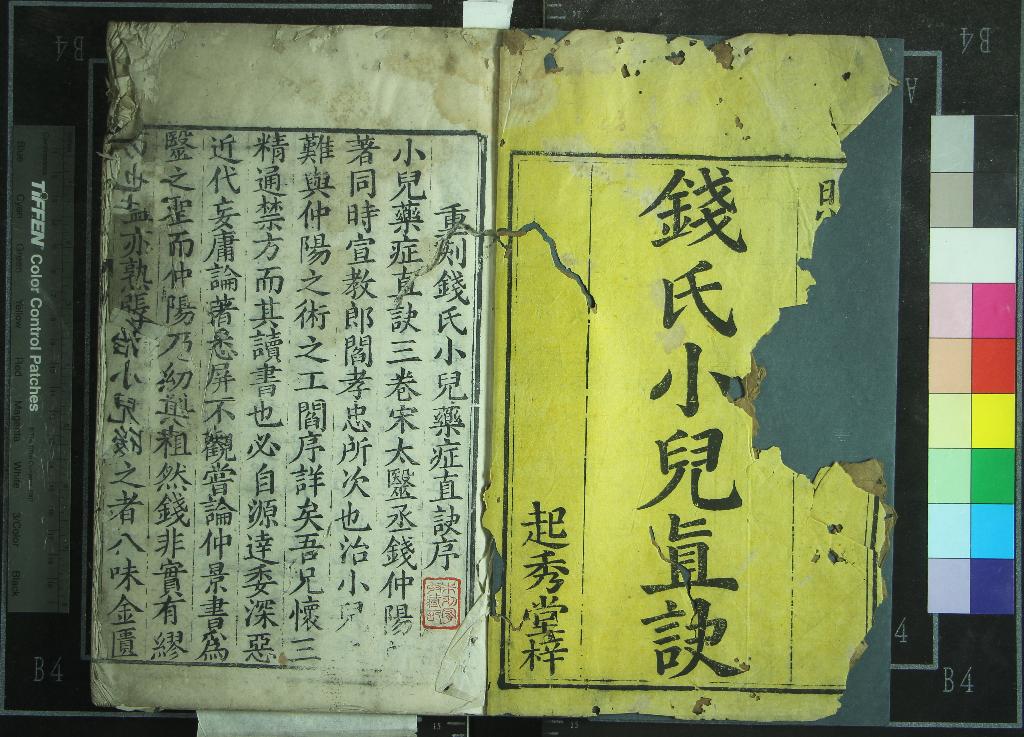 錢氏小兒直訣
起秀堂梓
重刻錢氏小兒藥症直訣序
小兒藥症直訣三卷宋太醫丞錢仲陽
著同時宣教郎閻孝忠所次也治小兒
難與仲陽之術之工閻序詳矣吾兄懷三
精通禁方而其讀書也必自源達委深惡
近代妄庸論著悉屏不觀嘗論仲景書為
醫之聖而仲陽乃幼眞粗然錢非實有繆
也亦熟張治小兒之者八味金匱
TIFFEN Color Control Patches
Blue Cyan Green Yellow Red Magenta White 3/Color Black
B4
B4
B4
B4
A
4
15
15